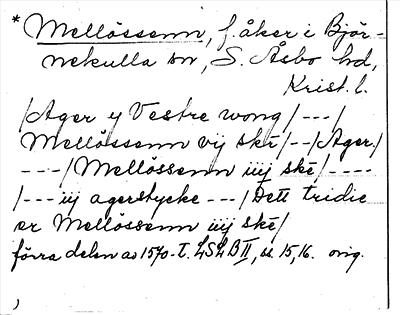 * Mellössenn, f. åker i Björ-
nekulla sn, S. Åsbo hd,
Krist. l.
/Ager y Vestre wong/---/
Mellössenn vij skē/--/Ager/
---/Mellössenn iiij skē/----
/--- iij agerstycke ---/Dett tridie
er Mellössenn iiij skē/
förra delen av 1570-t. LSLB II, ss. 15, 16. orig.